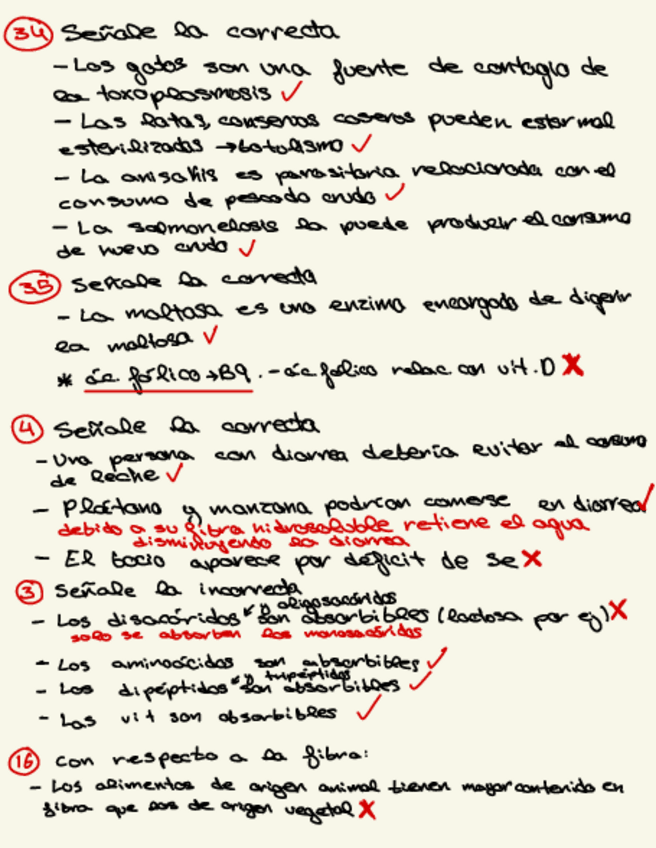 34 Señale la correcta
- Los gatos son una fuente de contagio de
la toxoplasmosis ✓
- Las latas, conservas caseras pueden estar mal
esterilizadas → botulismo ✓
- La anisakis es parasitaria relacionada con el
consumo de pescado crudo ✓
- La salmonelosis la puede producir el consumo
de huevo crudo ✓
35 Señale la correcta
- La maltasa es una enzima encargada de digerir
la maltosa ✓
* ác. fólico → B9. - ác fólico relac. con vit. D X
4 Señale la correcta
- Una persona con diarrea debería evitar el consumo
de leche ✓
- Plátano y manzana podrían comerse en diarrea ✓
debido a su fibra hidrosoluble retiene el agua
disminuyendo la diarrea
- El bocio aparece por déficit de Se X
3 Señale la incorrecta
- Los disacáridos y oligosacáridos son absorbibles (lactosa por ej) X
solo se absorben los monosacáridos
- Los aminoácidos son absorbibles ✓
- Los dipéptidos y tripéptidos son absorbibles ✓
- Las vit son absorbibles ✓
16 Con respecto a la fibra:
- Los alimentos de origen animal tienen mayor contenido en
fibra que los de origen vegetal X